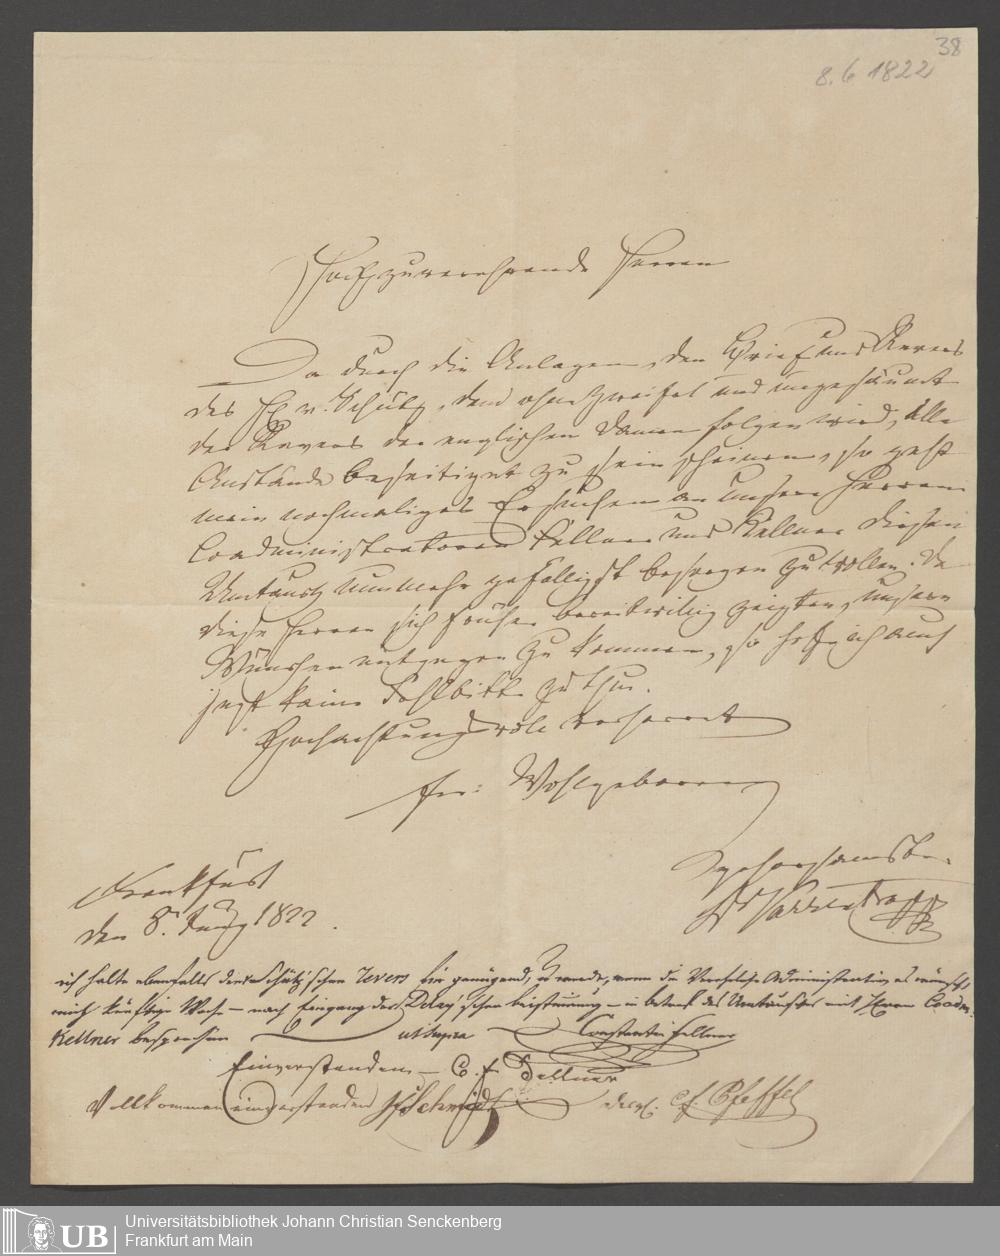 38
8. 6 1822
Hochzuverehrende Herren
Da durch die Anlagen, den Brief und Revers
des H v. Schütz, dem ohne Zweifel und ungesäumt
der Revers der englischen Damen folgen wird, alle
Anstände beseitiget zu sein scheinen, so geht
mein nochmaliges Ersuchen an unsere Herren
Coadministratoren Fellner und Kellner diesen
Umtausch nunmehr gefälligst besorgen zu wollen. Da
diese Herren sich früher bereitwillig zeigten, unsern
Wünschen entgegen zu kommen, so hoffe ich auch
jetzt keine Fehlbitte zu thun.
Hochachtungsvoll verharret
Ew: Wohlgeboren
Frankfurt
gehorsamster
den 8. Juny 1822.
Dr Varrentrapp
ich halte ebenfalls den v Schütz'schen Revers für genügend, u werde, wenn die Verehrliche Administration es wünscht,
mich künftige Woche – nach Eingang der schen beistimmung – in betreff des Umtausches mit Herrn Coadm.
Kellner besprechen ut supra Constantin Fellner
Einverstanden – C. F. Kellner
Vollkommen einverstanden Schmidt C. F. Pfeffel
UB
Universitätsbibliothek Johann Christian Senckenberg
Frankfurt am Main